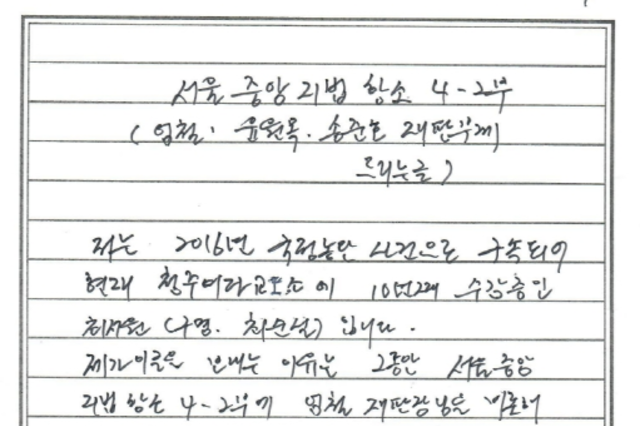 서울 중앙 지법 항소 4-2부
(엄철. 윤원목. 송중호 재판부께
드리는글)
저는 2016년 국정농단 사건으로 구속되어
현재 청주여자교도소에 10년째 수감중인
최서원 (구명. 최순실) 입니다.
제가이글을 보내는 이유는 그동안 서울중앙
지법 항소 4-2부에 엄철 재판장님을 비롯해